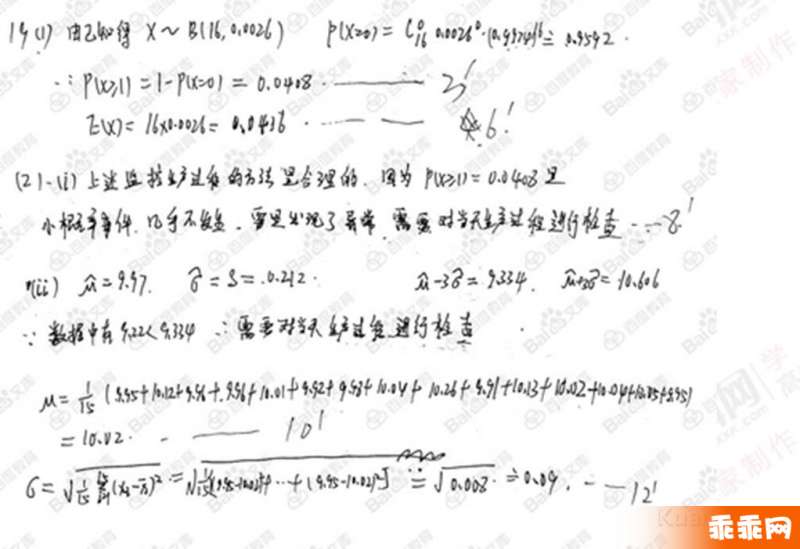 19 (1) 由已知得 X~B(16, 0.0026) P(X=0) = C₁₆⁰ 0.0026⁰·(0.9974)¹⁶ ≐ 0.9592.
∴ P(X≥1) = 1-P(X=0) = 0.0408 ······ —— 2'
E(X) = 16×0.0026 = 0.0416 ···· —— 6'
(2) (i) 上述监控生产过程的方法是合理的. 因为 P(X≥1) = 0.0408 是
小概率事件. 几乎不发生. 若是出现了异常. 需要对当天生产过程进行检查 ---- 8'
(ii) μ̂ = 9.97. σ̂ = S = 0.212. μ̂-3σ̂ = 9.334. μ̂+3σ̂ = 10.606
∵ 数据中有 9.22<9.334 ∴ 需要对当天生产过程进行检查
μ = 1/15 (9.95+10.12+9.96+9.96+10.01+9.92+9.98+10.04+10.26+9.91+10.13+10.02+10.04+10.05+9.95)
= 10.02. -- —— 10'
σ = √(1/15 Σ(xᵢ-x̄)²) = √(1/15[(9.95-10.02)²+···+(9.95-10.02)²]) = √0.008 ≐ 0.09. —— 12'
百度教育
Baidu文库
家制作
学
网
乖乖网